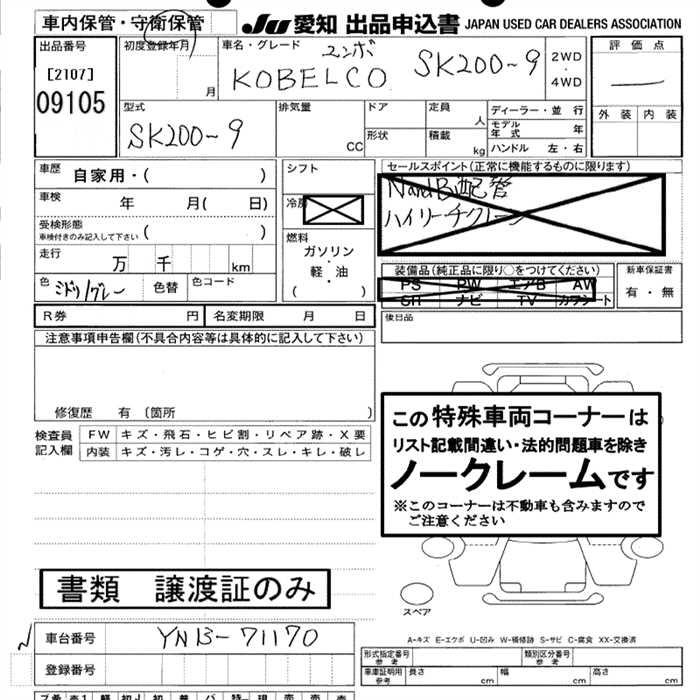 車内保管・守衛保管
JU 愛知 出品申込書 JAPAN USED CAR DEALERS ASSOCIATION
出品番号
[2107]
09105
初度登録年月
月
車名・グレード
ユンボ
KOBELCO SK200-9
2WD
・
4WD
評価点
外装 内装
型式
SK200-9
排気量
CC
ドア
形状
定員
人
積載
kg
ディーラー・並行
モデル年式 年
ハンドル 左・右
車歴
自家用・( )
車検 年 月( 日)
受検形態
車検付きのみ記入して下さい ( )
走行 万 千 km
色 ミドリ/グレー 色替 色コード
シフト
冷房
燃料
ガソリン
・
軽・油
( )
セールスポイント(正常に機能するものに限ります)
配管
ハイリーチクレーン
装備品(純正品に限り○をつけてください)
PS PW エアB AW
SR ナビ TV カワシート
新車保証書
有・無
R券 円 名変期限 月 日
後日品
注意事項申告欄(不具合内容等は具体的に記入して下さい)
修復歴 有 〔箇所 〕
検査員記入欄
FW キズ・飛石・ヒビ割・リペア跡・X要
内装 キズ・汚レ・コゲ・穴・スレ・キレ・破レ
この特殊車両コーナーは
リスト記載間違い・法的問題車を除き
ノークレームです
※このコーナーは不動車も含みますので
ご注意ください
書類 譲渡証のみ
スペア
A-キズ E-エクボ U-凹み W-補修跡 S-サビ C-腐食 XX-交換済
車台番号 YN13-71170
登録番号
形式指定番号 参考
類別区分番号 参考
車庫証明用 参考
長さ cm 幅 cm 高さ cm